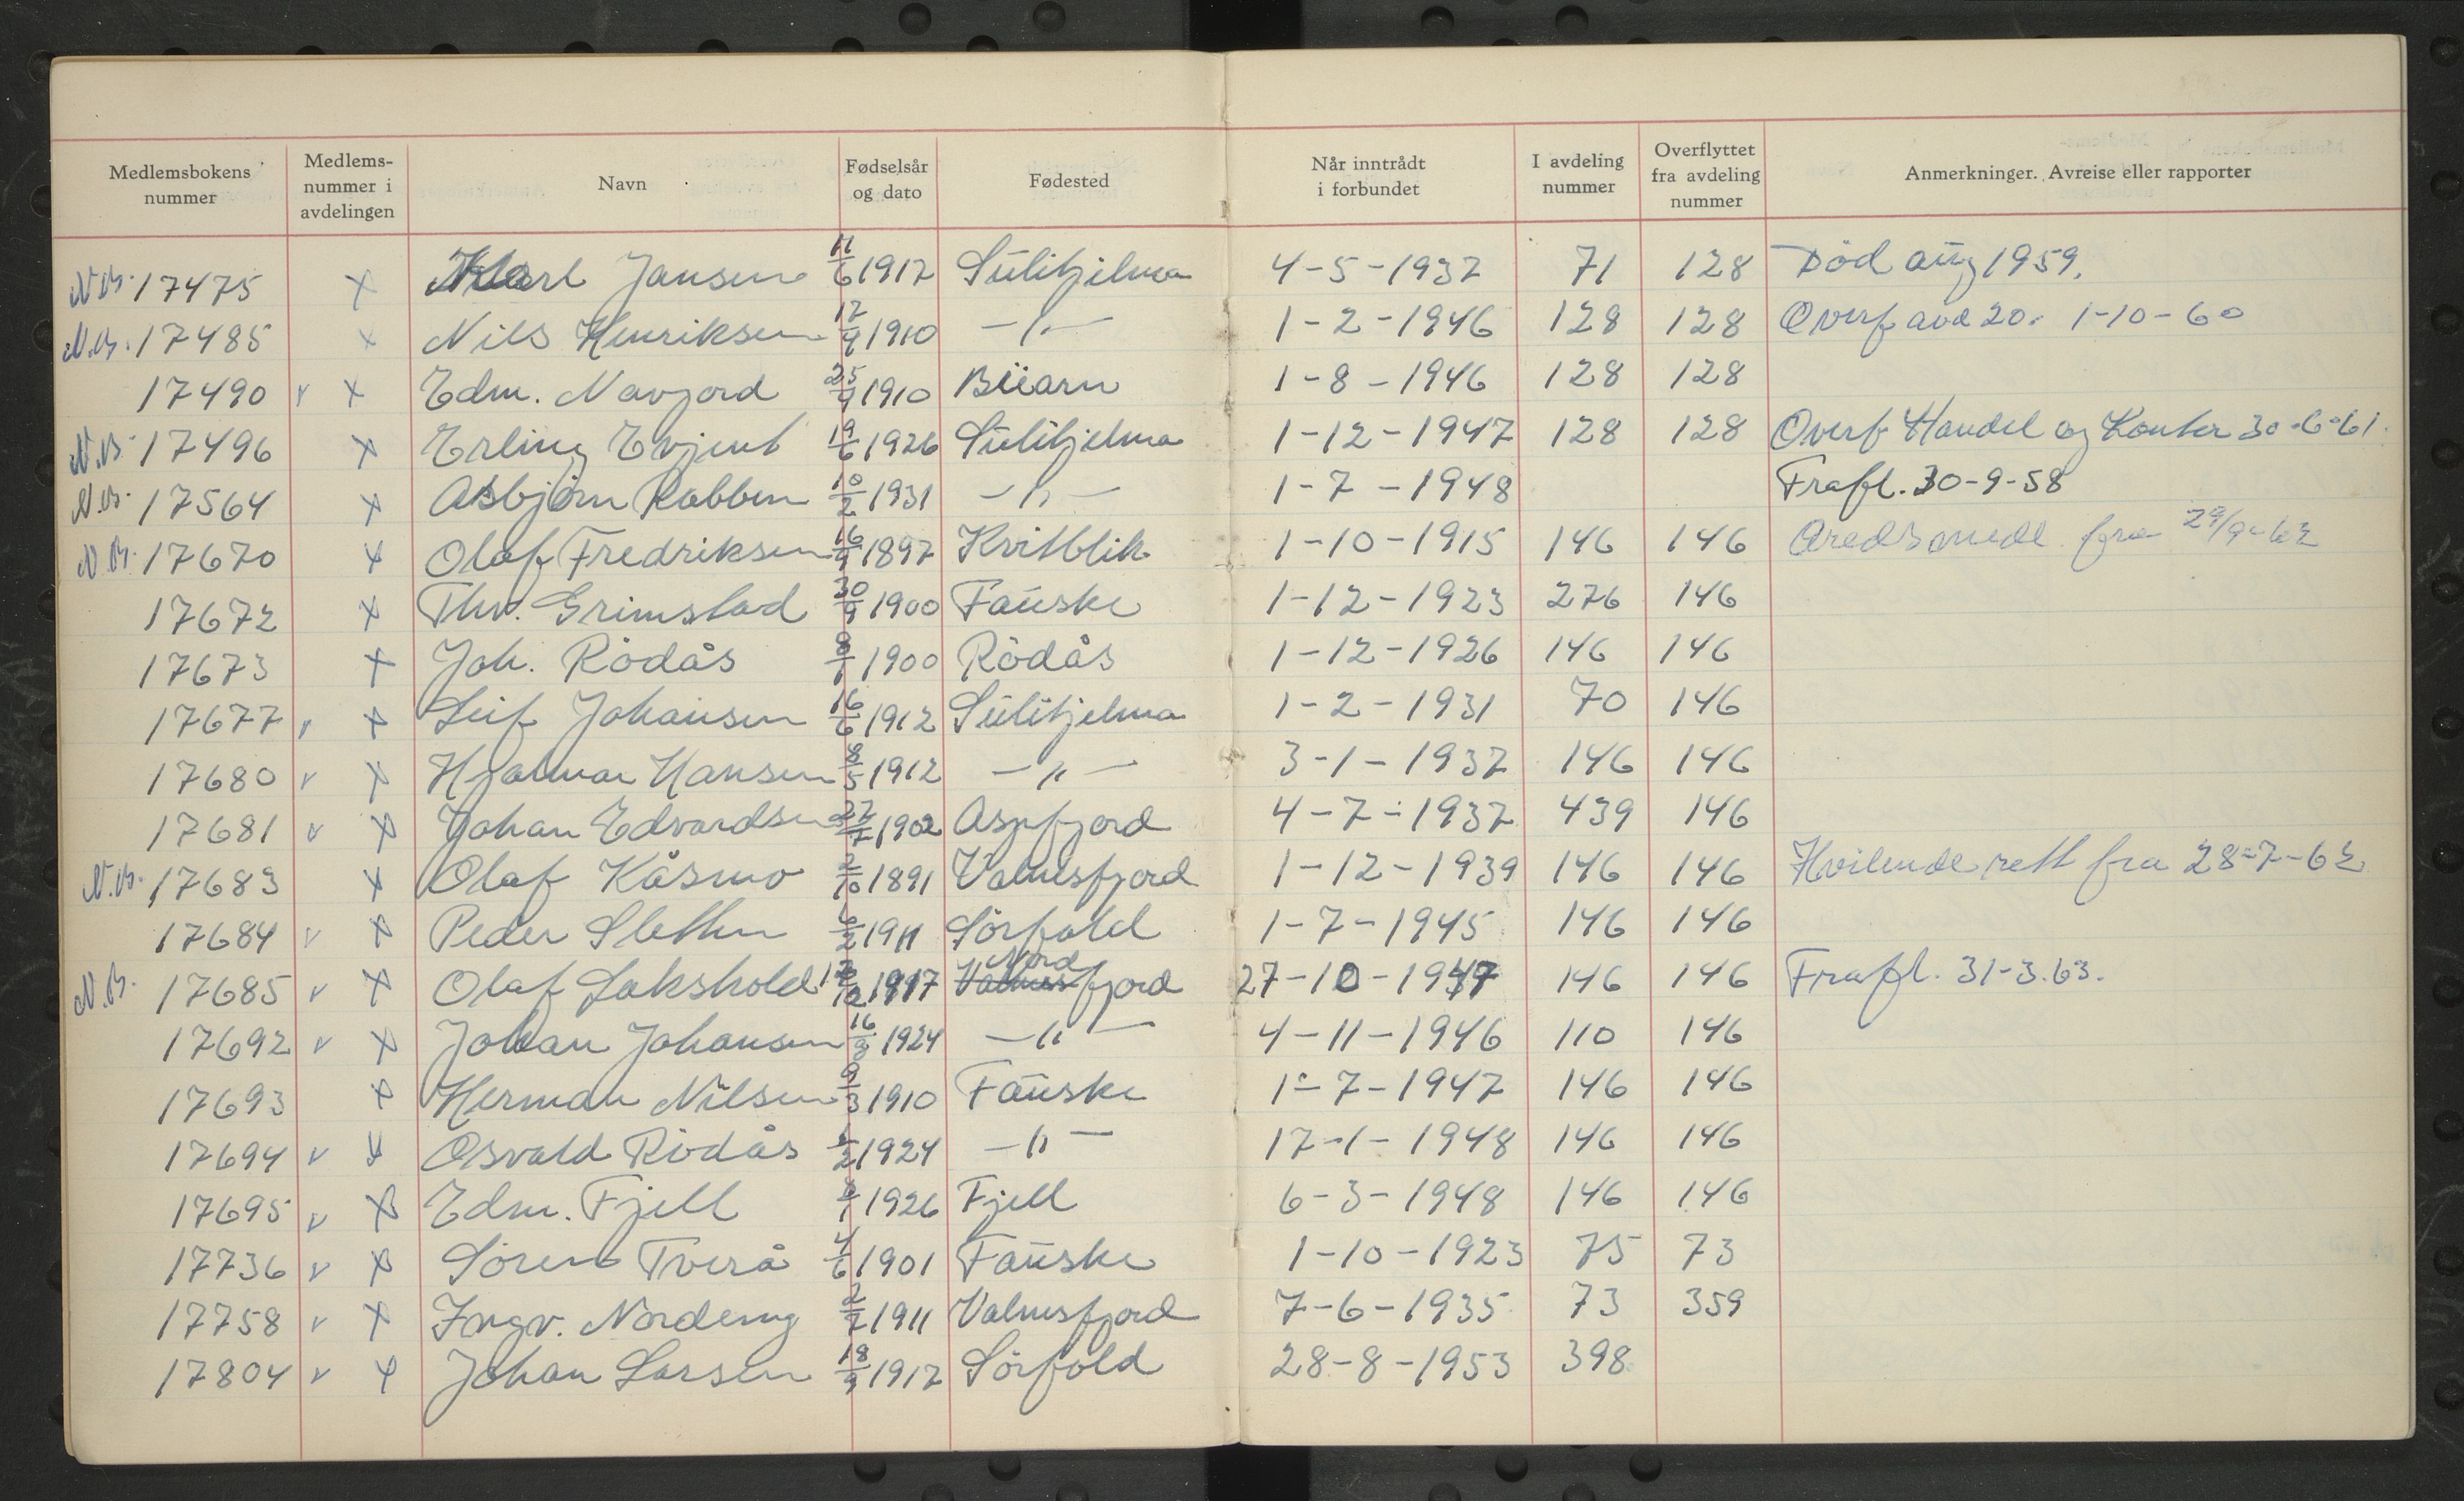 Medlemsbokens nummer | Medlems-nummer i avdelingen | Navn | Fødselsår og dato | Fødested | Når inntrådt i forbundet | I avdeling nummer | Overflyttet fra avdeling nummer | Anmerkninger. Avreise eller rapporter
N.B. 17475 x Karl Jansen 11/6 1912 Sulitjelma 4-5-1937 71 128 Död aug 1959.
N.B. 17485 x Nils Henriksen 12/9 1910 -"- 1-2-1946 128 128 Overf avd 20. 1-10-60
17490 v x Edm. Navjord 25/9 1910 Beiarn 1-8-1946 128 128
N.B. 17496 x Erling Evjent 19/6 1926 Sulitjelma 1-12-1947 128 128 Overf Handel og Kontor 30-6-61.
N.B. 17564 x Asbjörn Robben 10/2 1931 -"- 1-7-1948 Frafl. 30-9-58
N.B. 17670 x Olaf Fredriksen 16/9 1897 Kvitblik 1-10-1915 146 146 fra 29/9-62
17672 x Thv. Grimstad 30/9 1900 Fauske 1-12-1923 276 146
17673 x Joh. Rödås 8/1 1900 Rödås 1-12-1926 146 146
17677 v x Leif Johansen 16/6 1912 Sulitjelma 1-2-1931 70 146
17680 v x Hjalmar Hansen 8/5 1912 -"- 3-1-1937 146 146
17681 v x Johan Edvardsen 27/7 1902 Aspfjord 4-7-1937 439 146
N.B. 17683 x Olaf Kåsmo 2/10 1891 Valnesfjord 1-12-1939 146 146 Hvilende rett fra 28-7-62
17684 v x Peder Sletten 1911 Sörfold 1-7-1945 146 146
N.B. 17685 v x Olaf Lakshold 1917 Nordfjord 27-10-1947 146 146 Frafl. 31-3.63.
17692 v x Johan Johansen 16/8 1924 -"- 4-11-1946 110 146
17693 x Herman Nilsen 9/3 1910 Fauske 1-7-1947 146 146
17694 v x Osvald Rödås 1924 -"- 17-1-1948 146 146
17695 v x Edm. Fjell 1926 Fjell 6-3-1948 146 146
17736 v x Sören Tverå 4/6 1901 Fauske 1-10-1923 75 73
17758 v x Ingv. Nordeng 2/7 1911 Valnesfjord 7-6-1935 73 359
17804 v x Johan Larsen 18/9 1912 Sörfold 28-8-1953 398